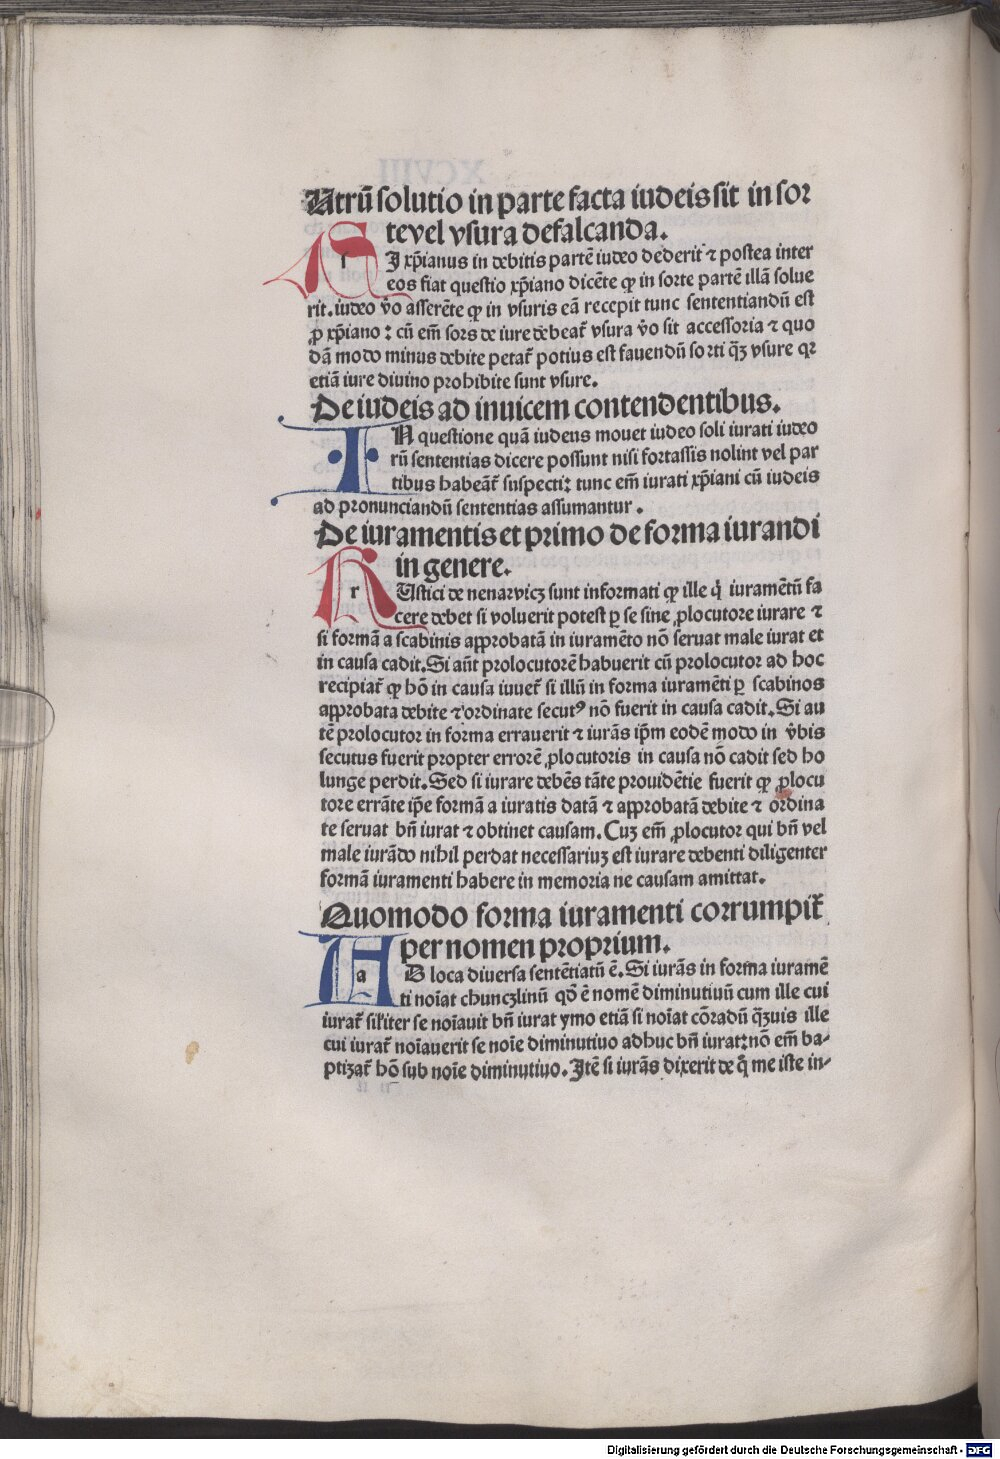 Utrū solutio in parte facta iudeis sit in sor
te vel vsura defalcanda.
SI xp̄ianus in debitis partē iudeo dederit ⁊ postea inter
eos fiat questio xp̄iano dicēte ꝙ in sorte partē illā solue
rit. iudeo v̄o asserēte ꝙ in vsuris eā recepit tunc sententiandū est
ꝓ xp̄iano : cū em̄ sors de iure debeat᷑ vsura v̄o sit accessoria ⁊ quo
dā modo minus debite petat᷑ potius est fauendū sorti qꝫ vsure qꝛ
etiā iure diuino prohibite sunt vsure.
De iudeis ad inuicem contendentibus.
IN questione quā iudeus mouet iudeo soli iurati iudeo
rū sententias dicere possunt nisi fortassis nolint vel par
tibus habeāt᷑ suspecti: tunc em̄ iurati xp̄iani cū iudeis
ad pronunciandū sententias assumantur.
De iuramentis et primo de forma iurandi
in genere.
RUstici de nenarvicz sunt informati ꝙ ille q̇ iuramētū fa
cere debet si voluerit potest ꝑ se sine ꝓlocutore iurare ⁊
si formā a scabinis approbatā in iuramēto nō seruat male iurat et
in causa cadit. Si aūt prolocutorē habuerit cū prolocutor ad hoc
recipiat᷑ ꝙ hō in causa iuuet᷑ si illū in forma iuramēti ꝑ scabinos
approbata debite ⁊ ordinate secutꝰ nō fuerit in causa cadit. Si au
tē prolocutor in forma errauerit ⁊ iurās ip̄m eodē modo in v̄bis
secutus fuerit propter errorē ꝓlocutoris in causa nō cadit sed ho
lunge perdit. Sed si iurare debēs tāte prouidētie fuerit ꝙ ꝓlocu
tore errāte ip̄e formā a iuratis datā ⁊ approbatā debite ⁊ ordina
te seruat bn̄ iurat ⁊ obtinet causam. Cuꝫ em̄ ꝓlocutor qui bn̄ vel
male iurādo nihil perdat necessariuꝫ est iurare debenti diligenter
formā iuramenti habere in memoria ne causam amittat.
Quomodo forma iuramenti corrumpit᷑
per nomen proprium.
AD loca diuersa sentētiatū ē. Si iurās in forma iuramē
ti noīat chunczlinū qd̄ ē nomē diminutiuū cum ille cui
iurat᷑ sil̄iter se noīauit bn̄ iurat ymo etiā si noīat cōradū qꝫuis ille
cui iurat᷑ noīauerit se noīe diminutiuo adhuc bn̄ iurat: nō em̄ ba-
ptizat᷑ hō sub noīe diminutiuo. Itē si iurās dixerit de q̊ me iste in-
Digitalisierung gefördert durch die Deutsche Forschungsgemeinschaft - DFG